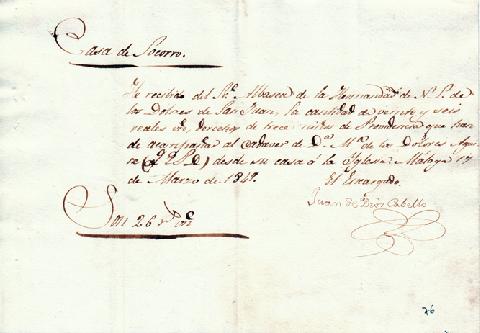 Casa de Socorro.
He recibido del Sr. Albacea de la Hermandad de N. S. de
los Dolores de San Juan, la cantidad de veinte y seis
reales vn, de trece niños de Providencia que han
de acompañar al cadaver de Da. Ma. de los Dolores
(Q. E. P. D.) desde su casa á la Iglesia. Málaga 17
de Marzo de 1849.
El Encargado.
Juan de Dios Cabello
Son 26 rs. vn
26